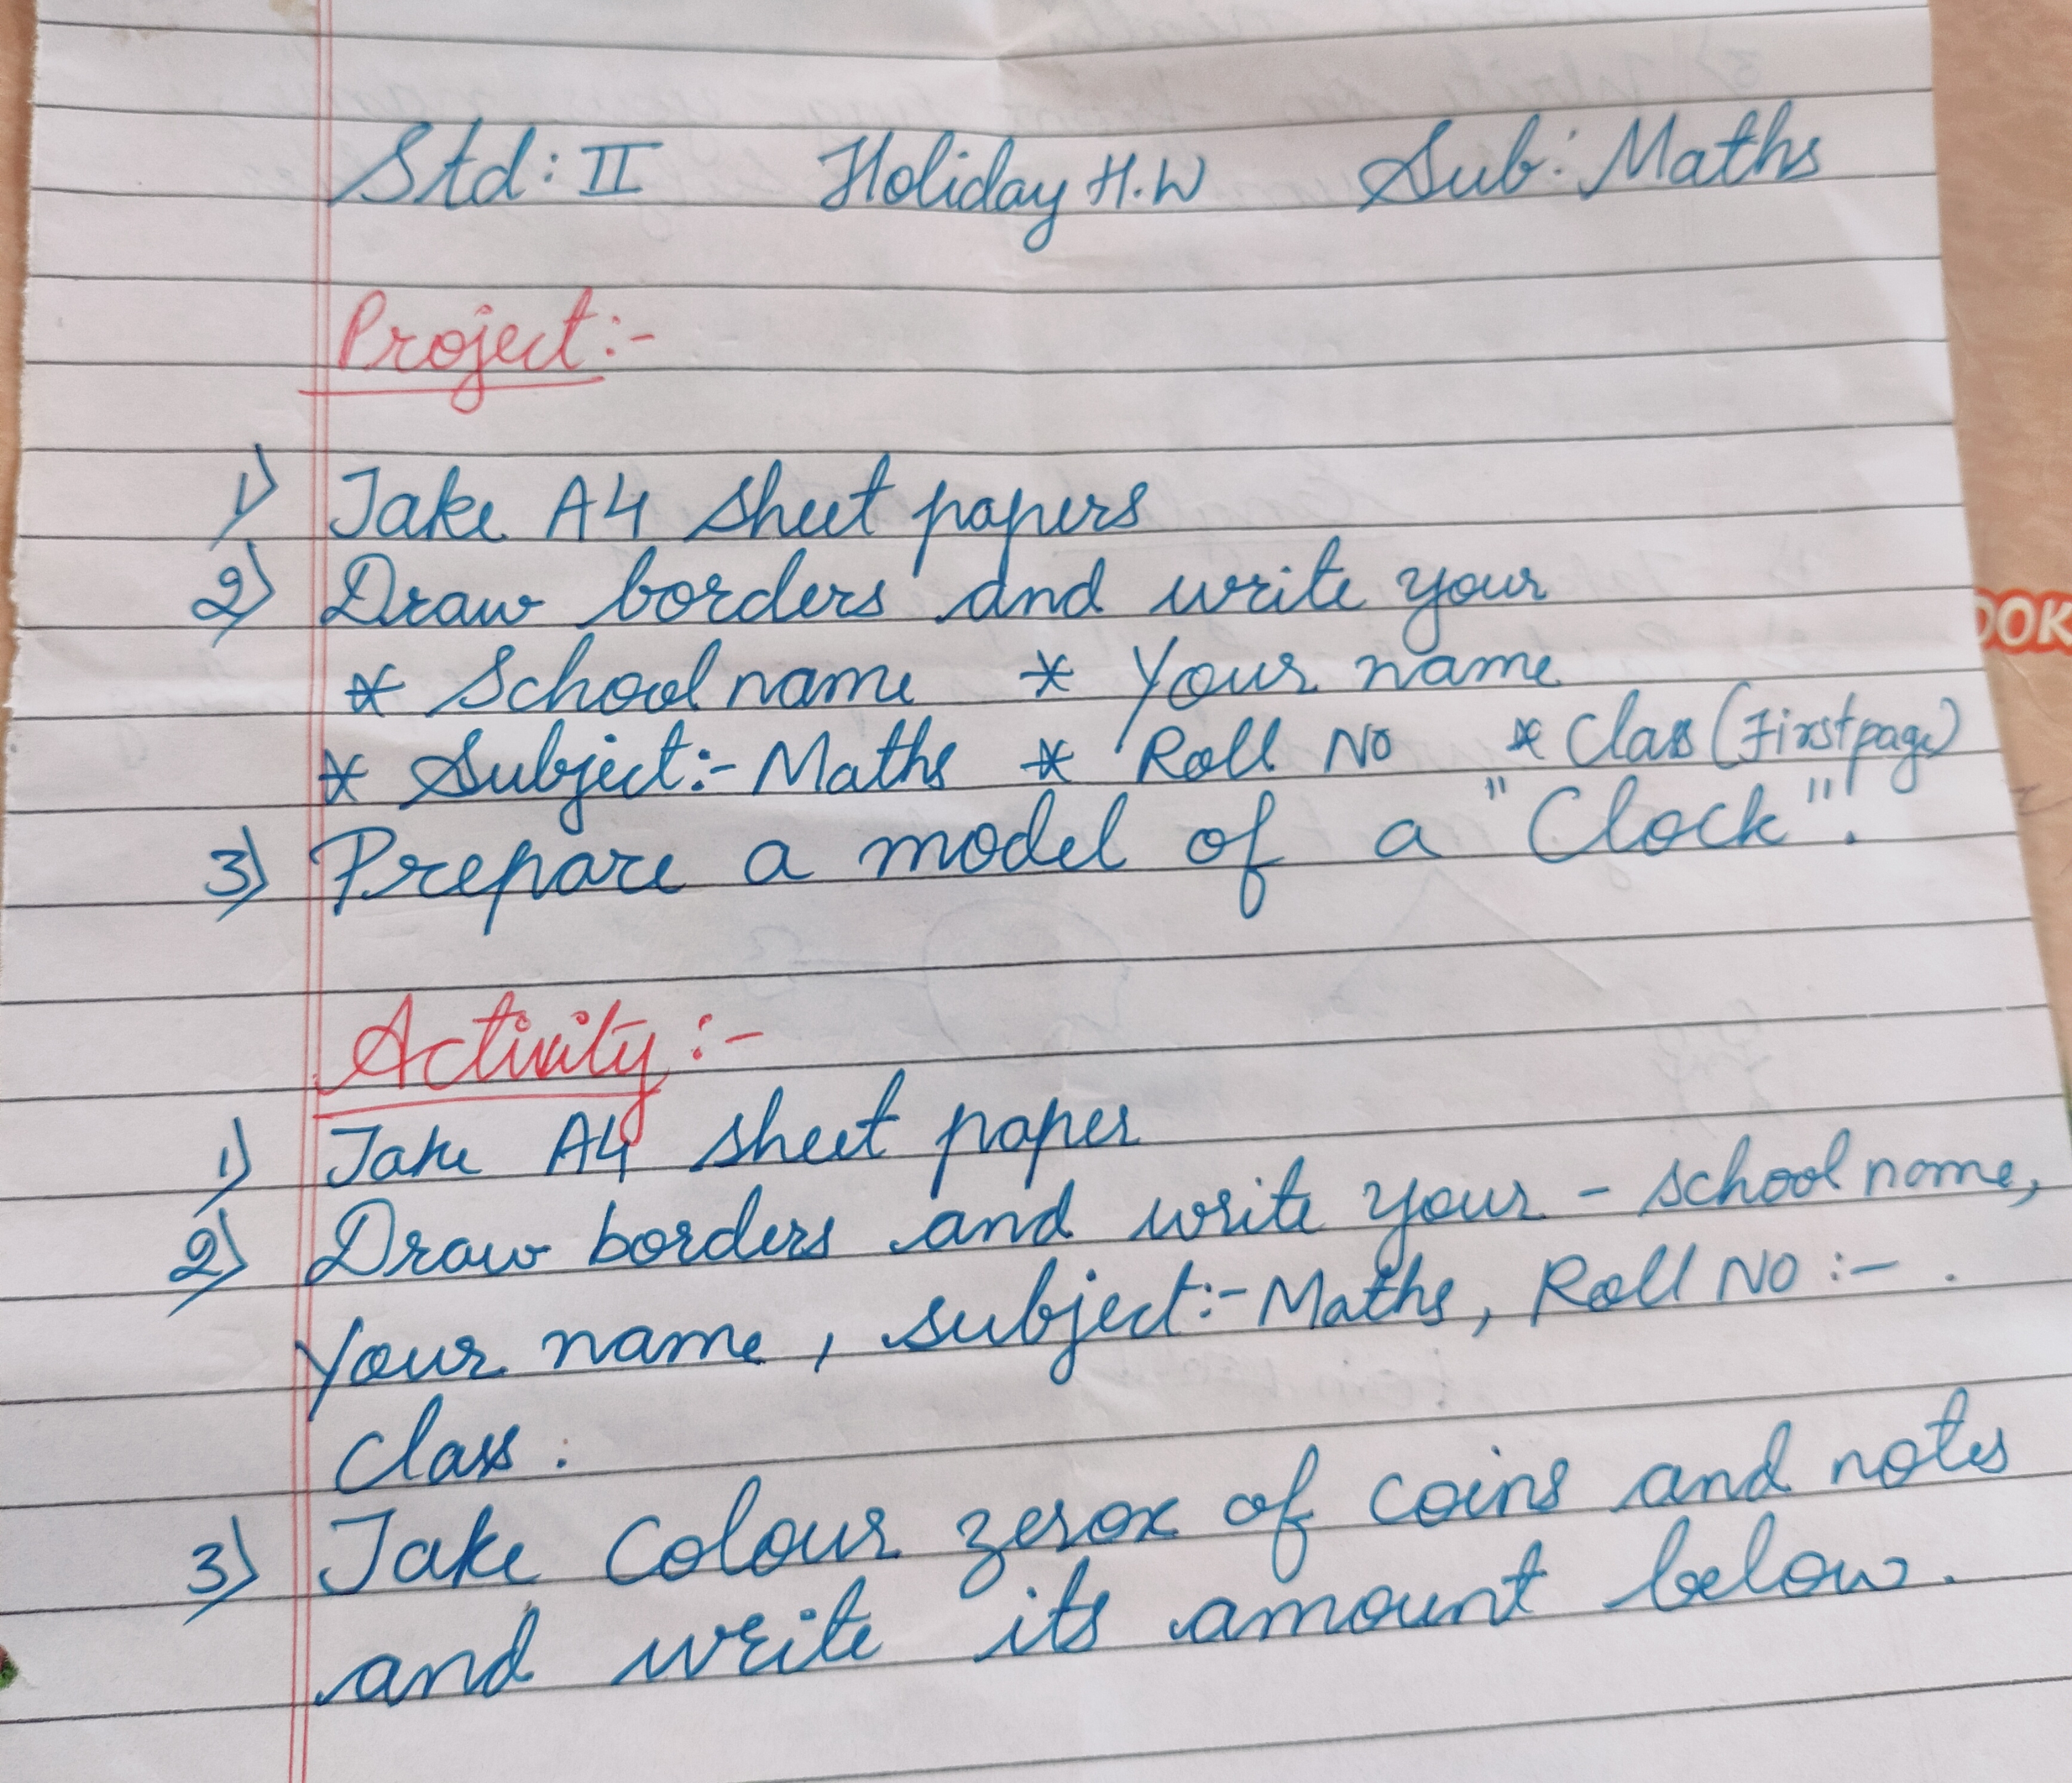 Std: II Holiday H.W Sub: Maths
Project:-
1) Take A4 sheet papers
2) Draw borders and write your
* School name * Your name
* Subject:- Maths * Roll No * Class (First page)
3) Prepare a model of a "Clock".
Activity:-
1) Take A4 sheet paper
2) Draw borders and write your - school name,
Your name, subject:- Maths, Roll No:- .
Class.
3) Take Colour zerox of coins and notes
and write its amount below.
OOK